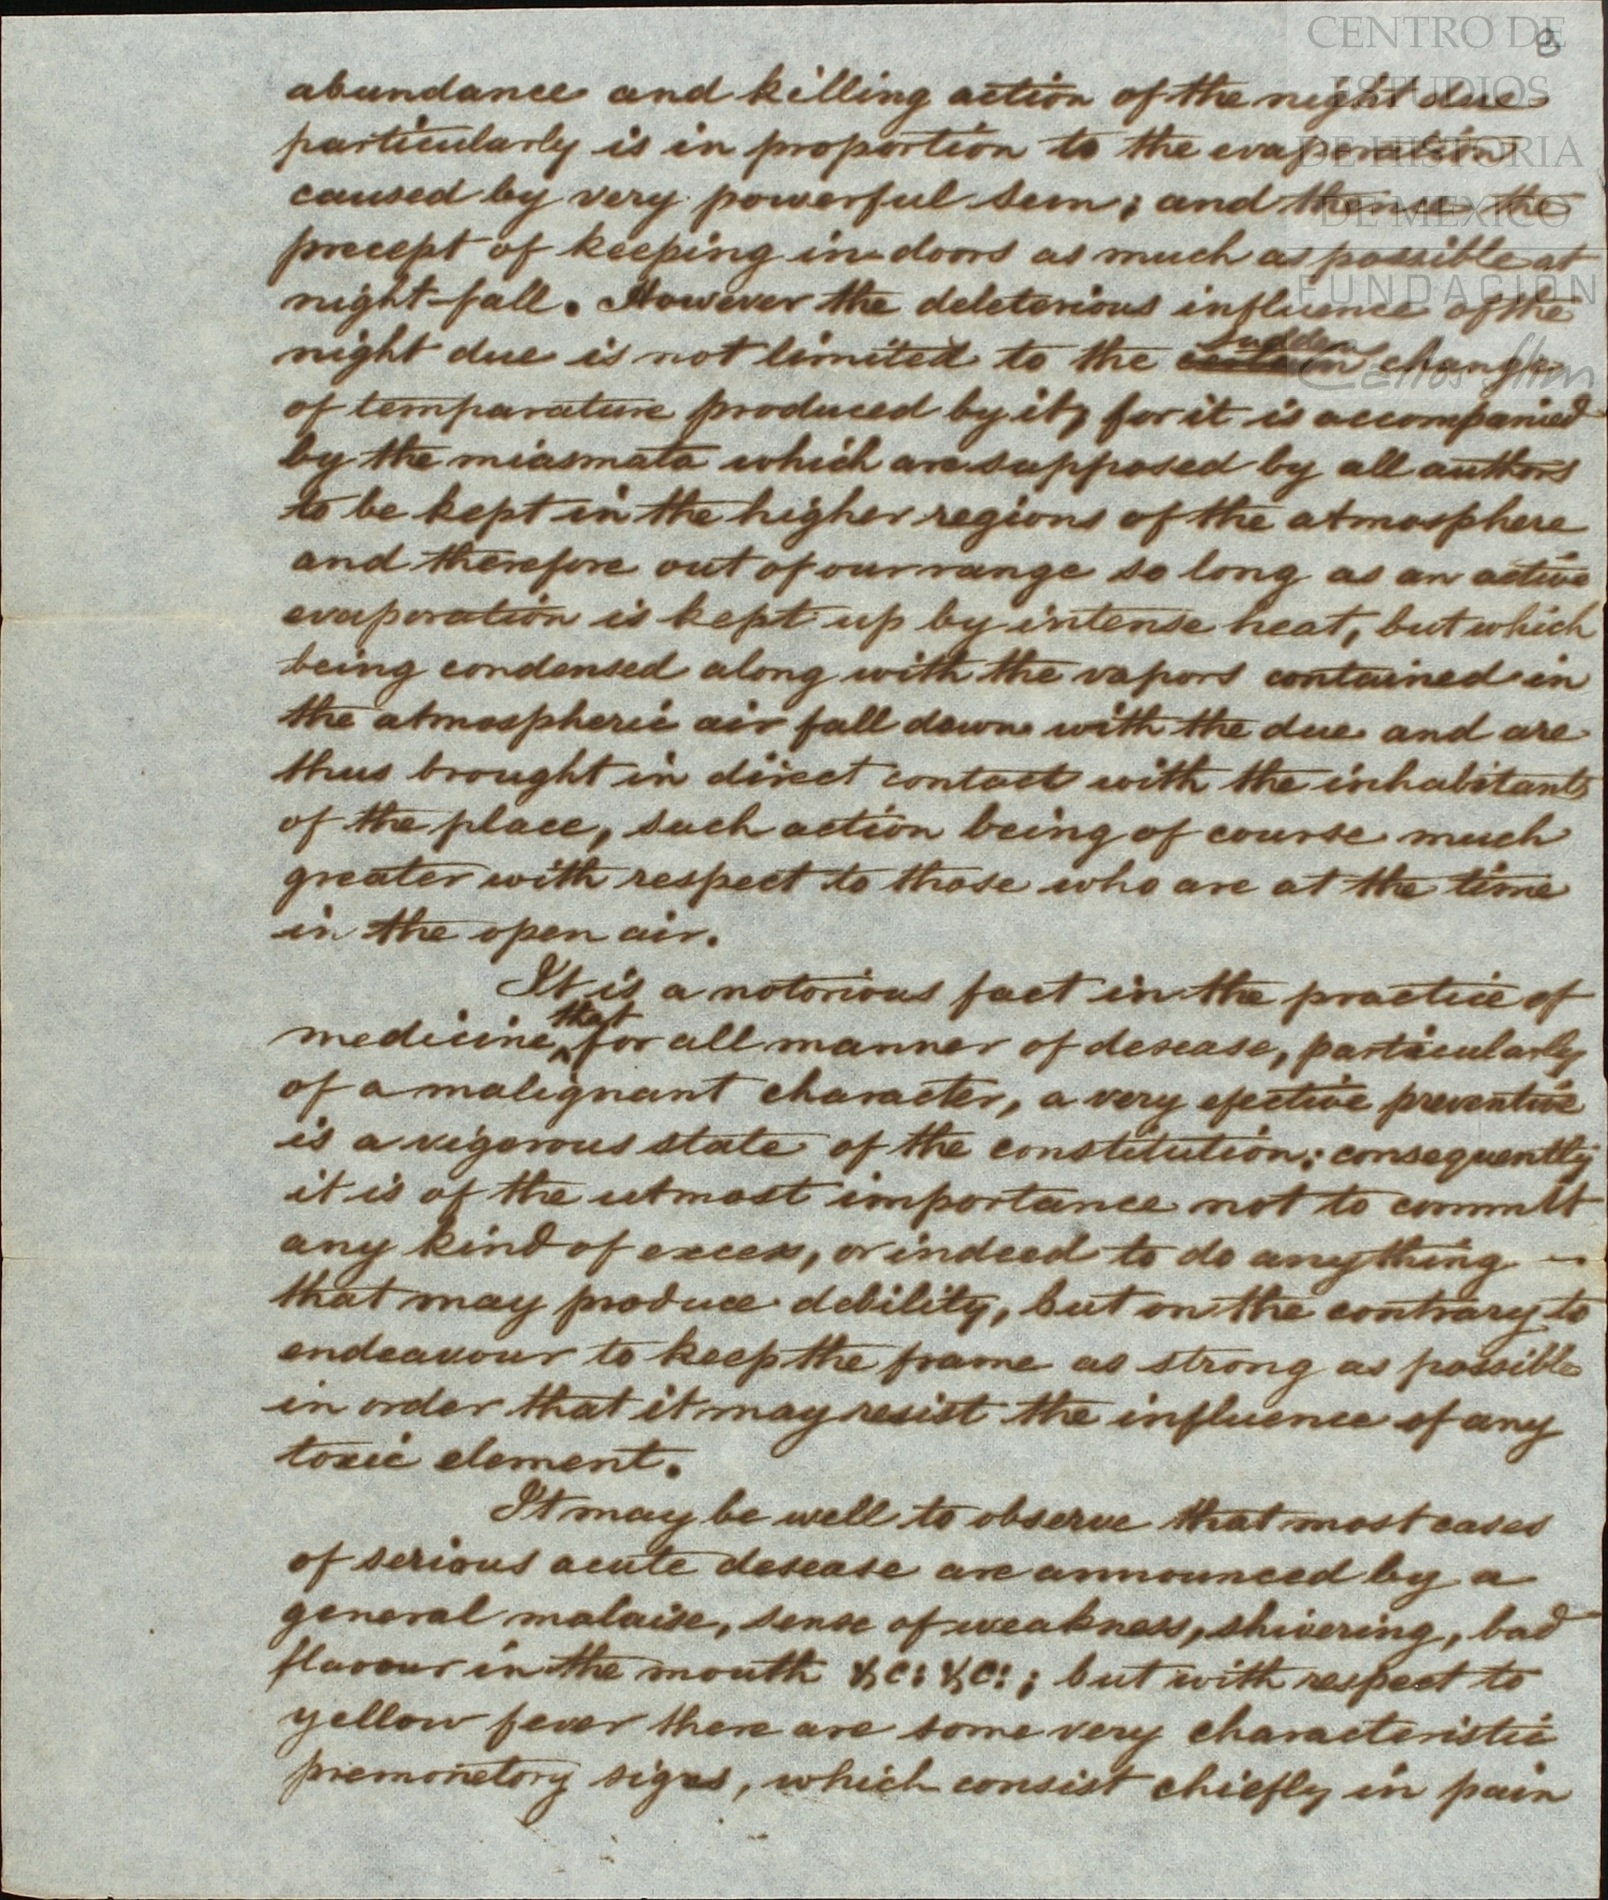 8
CENTRO DE
ESTUDIOS
DE HISTORIA
DE MEXICO
FUNDACION
Carlos Slim
abundance and killing action of the night due
particularly is in proportion to the evaporation
caused by very powerful sun; and thence the
precept of keeping in-doors as much as possible at
night-fall. However the deleterious influence of the
night due is not limited to the sudden change
of temparature produced by it, for it is accompanied
by the miasmata which are supposed by all authors
to be kept in the higher regions of the atmosphere
and therefore out of our range so long as an active
evaporation is kept up by intense heat, but which
being condensed along with the vapors contained in
the atmospheric air fall down with the due and are
thus brought in direct contact with the inhabitants
of the place, such action being of course much
greater with respect to those who are at the time
in the open air.
It is a notorious fact in the practice of
medicine that for all manner of desease, particularly
of a malignant character, a very efective preventive
is a vigorous state of the constitution; consequently
it is of the utmost importance not to committ
any kind of excess, or indeed to do anything –
that may produce debility, but on the contrary to
endeavour to keep the frame as strong as possible
in order that it may resist the influence of any
toxic element.
It may be well to observe that most cases
of serious acute desease are announced by a
general malaise, sense of weakness, shivering, bad
flavour in the mouth &c: &c:; but with respect to
yellow fever there are some very characteristic
premonetory signs, which consist chiefly in pain